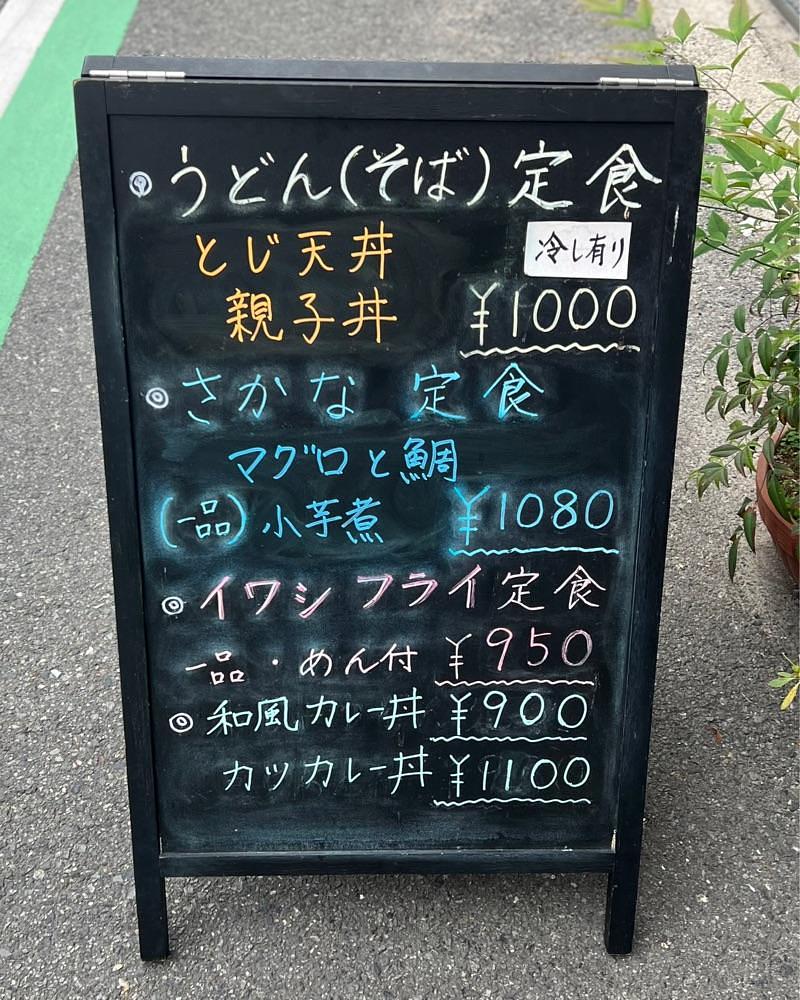 ◎うどん(そば)定食
とじ天丼 冷し有り
親子丼 ¥1000
◎さかな定食
マグロと鯛
(一品)小芋煮 ¥1080
◎イワシフライ定食
一品・めん付 ¥950
◎和風カレー丼 ¥900
カツカレー丼 ¥1100